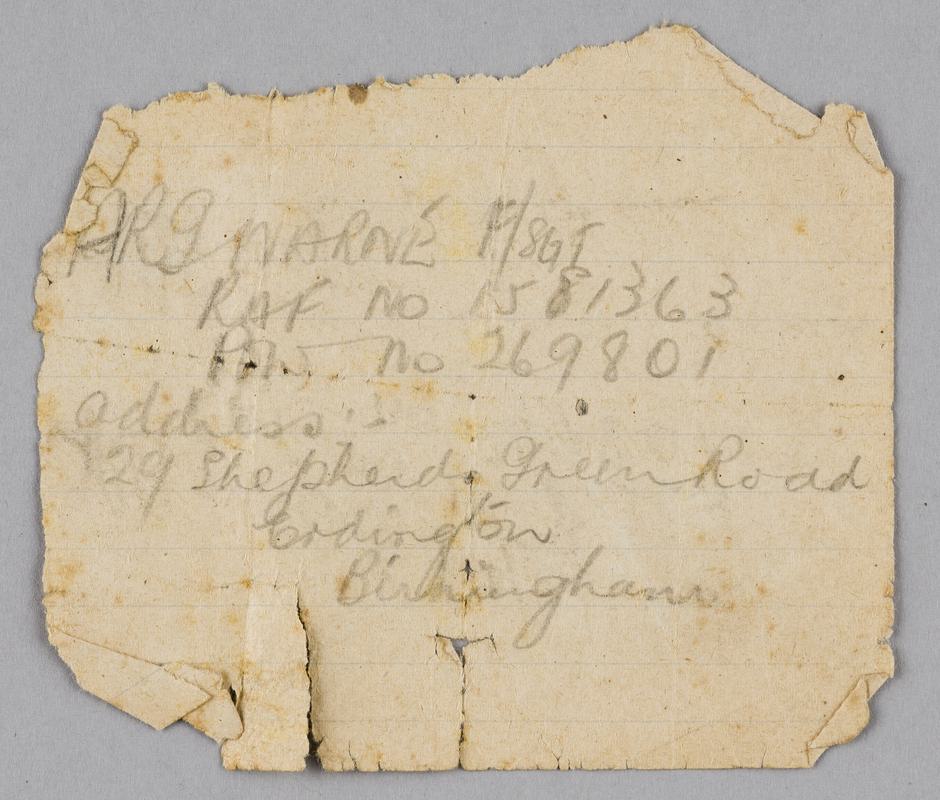 ARG WARNE F/SGT
RAF No 1581363
P.O.W. No 269801
address :-
29 Shepherds Green Road
Erdington
Birmingham